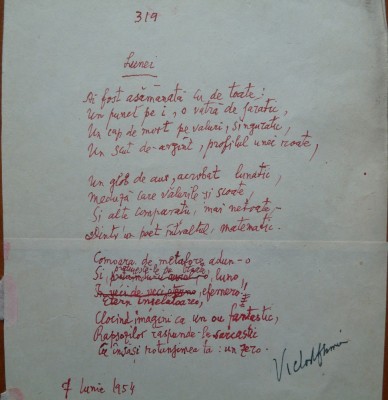 319
Lunei
Ai fost asămănată cu de toate:
Un punct pe i, o vatră de jaratic,
Un cap de mort pe valuri, singuratic,
Un scut de-argint, profilul unei roate,
Un glob de aur, acrobat lunatic,
Meduză care vălurile și scoate,
Și alte comparații, mai netoate,
Dintr-un poet matematic.
Comoara de metafore adun-o
Și luno,
În veci de veci efemero!!
Etern înșelătoare,
Clocind imagini ca un ou fantastic,
Rapsozilor răspunde-le sarcastic
Ca însăși rotunjimea ta: un zero.
7 Iunie 1954